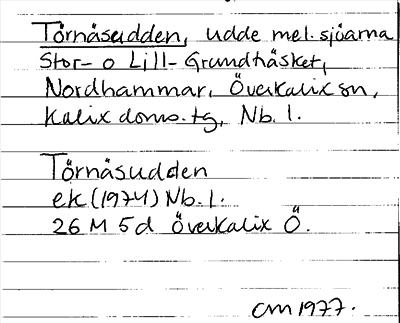 Törnäsudden, udde mel. sjöarna
Stor- o Lill-Grundträsket,
Nordhammar, Överkalix sn,
Kalix doms. tg, Nb. l.
Törnäsudden
ek (1974) Nb. l.
26 M 5d Överkalix Ö.
CM 1977.